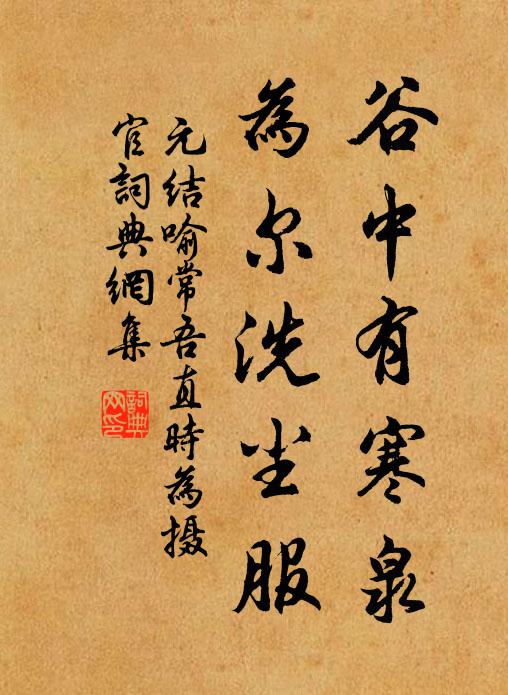 谷中有寒泉
為尔洗尘服
元结喻常吾直時為摄
官詞典網集
詞典
网印